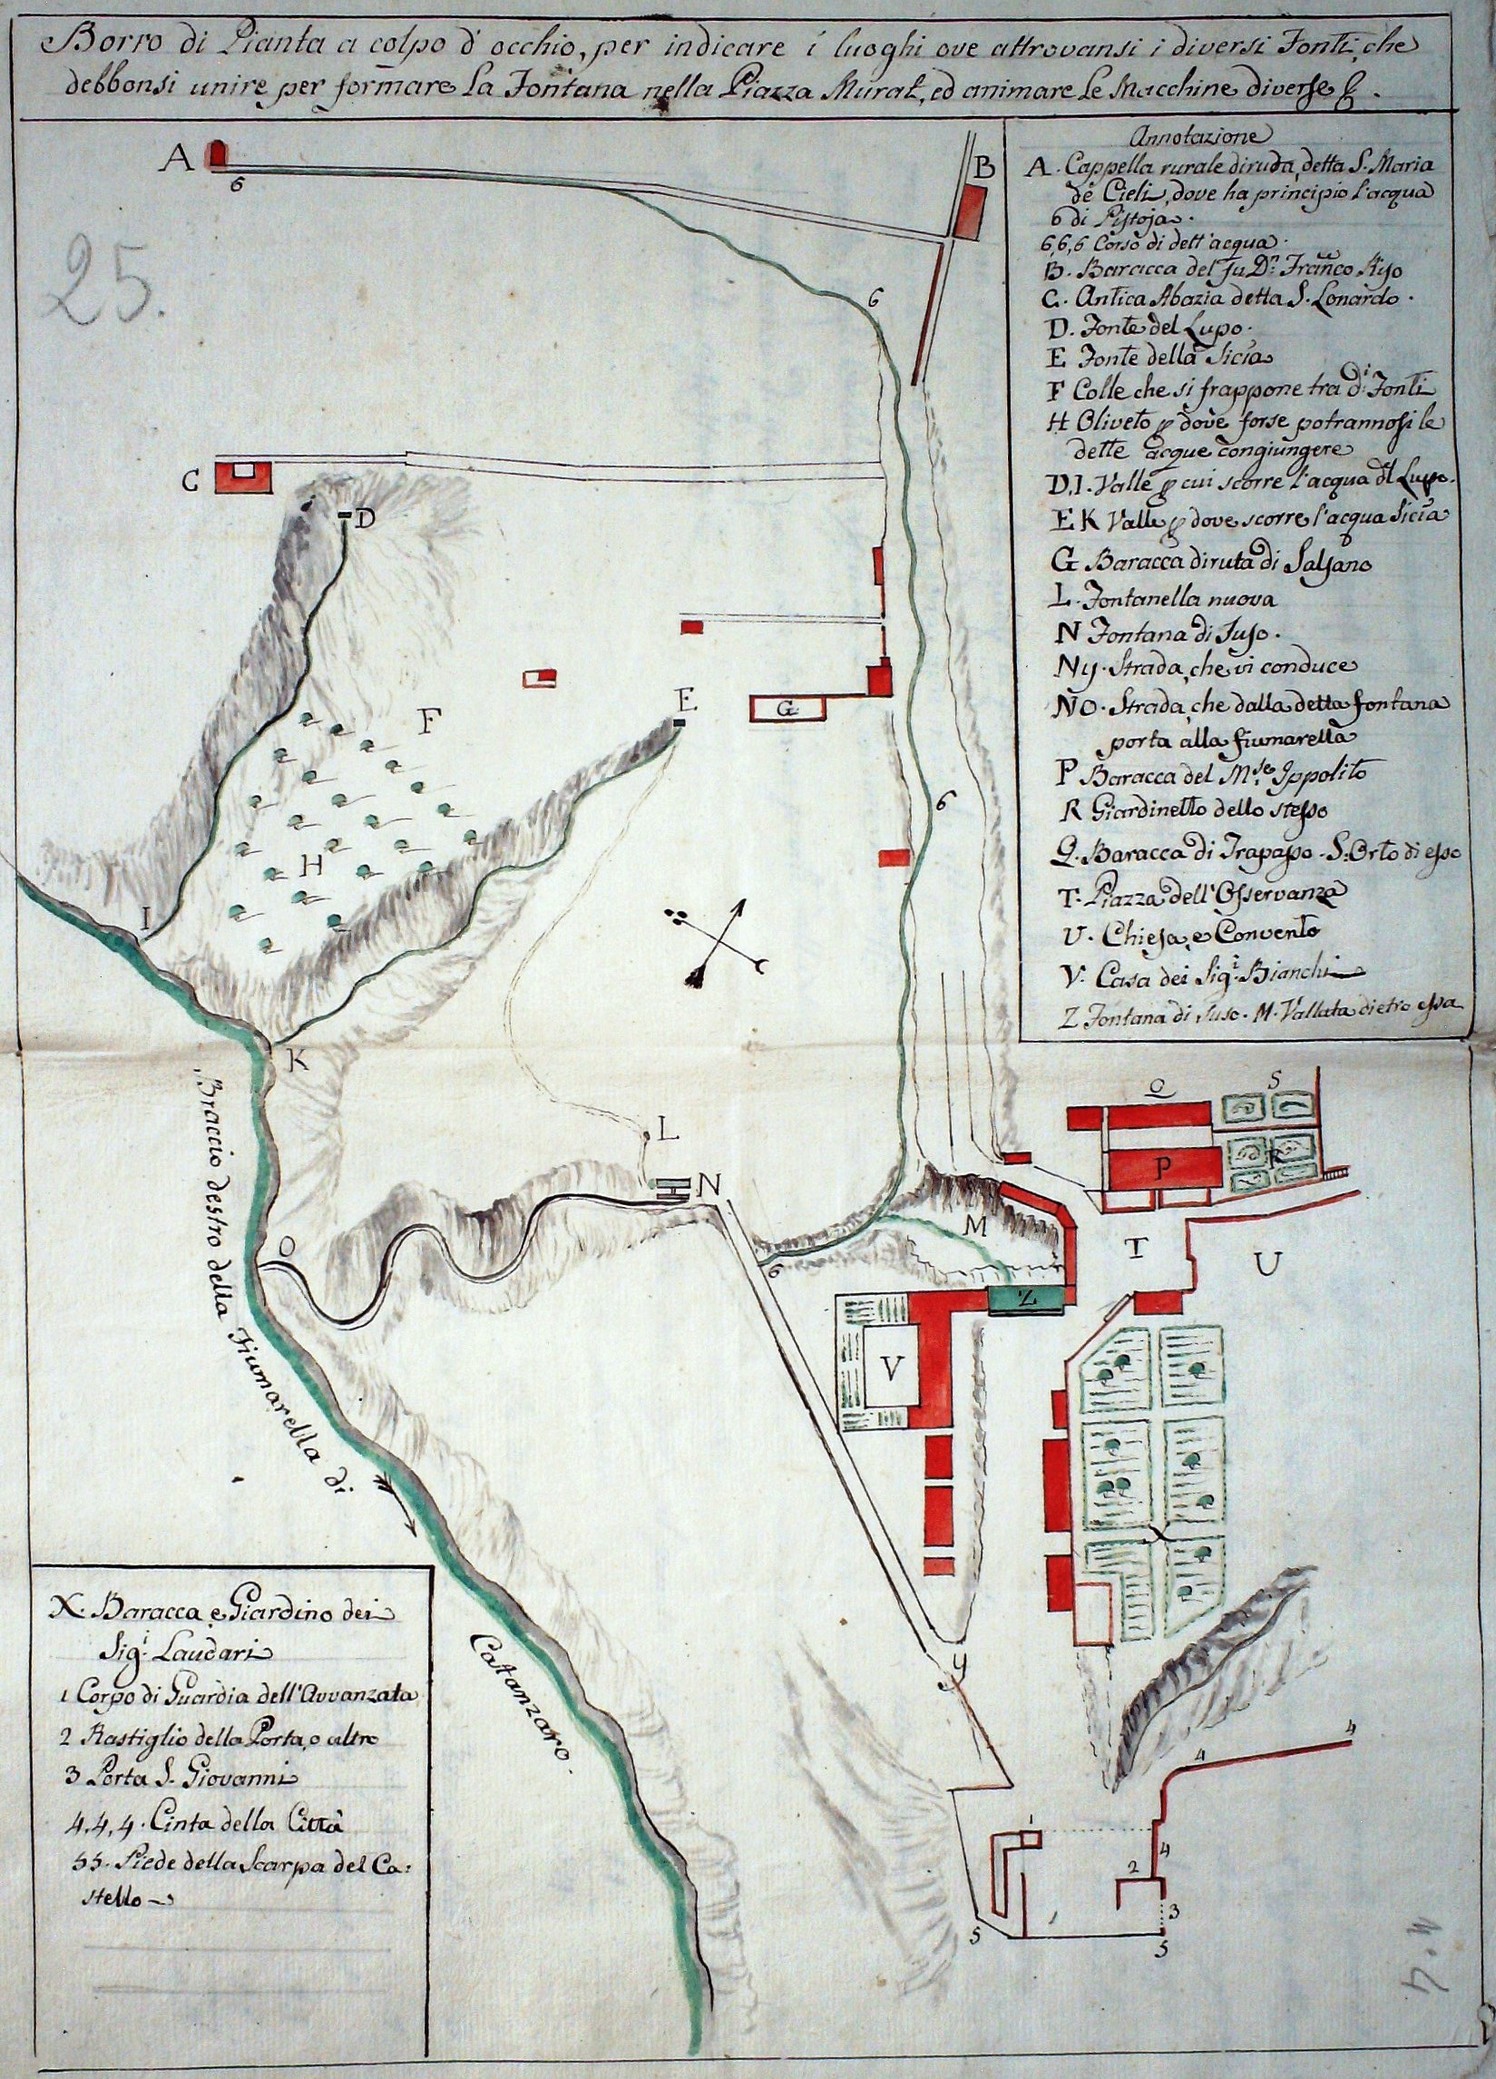 Borro di Pianta a colpo d'occhio, per indicare i luoghi ove attrovansi i diversi Fonti, che
debbonsi unire per formare La Fontana nella Piazza Murat, ed animare le Macchine diverse
25.
A
6
B
6
C
D
F
E
G
6
H
I
K
L
N
O
M
6
Z
V
Q
S
P
R
T
U
X
y
4
4
1
4
2
3
5
5
Braccio destro della Fiumarella di
Catanzaro
Annotazione
A. Cappella rurale diruda, detta S. Maria
de Cieli, dove ha principio l'acqua
6 di Pistoja.
6,6,6 Corso di dett'acqua.
B. Baracca del fu Dn. Franco
C. Antica Abazia detta S. Lonardo.
D. Fonte del Lupo.
E Fonte della Sicia
F Colle che si frappone tra di Fonti
H Oliveto p dove forse potrannosi le
dette acque congiungere
D,I. Valle p cui scorre l'acqua dl Lupo.
E K Valle p dove scorre l'acqua Sicia
G Baracca diruta di Salsano
L. Fontanella nuova
N Fontana di Suso.
Ny. Strada, che vi conduce
NO. Strada, che dalla detta fontana
porta alla fiumarella
P Baracca del Mse. Ippolito
R Giardinetto dello stesso
Q. Baracca di Trapasso - S: Orto di esso
T. Piazza dell'Osservanza
U. Chiesa, e Convento
V. Casa dei Sigi. Bianchi
Z Fontana di Suso. M. Vallata dietro essa
X. Baracca, e Giardino dei
Sigi. Laudari
1 Corpo di Guardia dell'Avvanzata
2 Rastiglio della Porta, o altro
3 Porta S. Giovanni
4,4,4. Cinta della Città
55. Piede della Scarpa del Ca:
stello